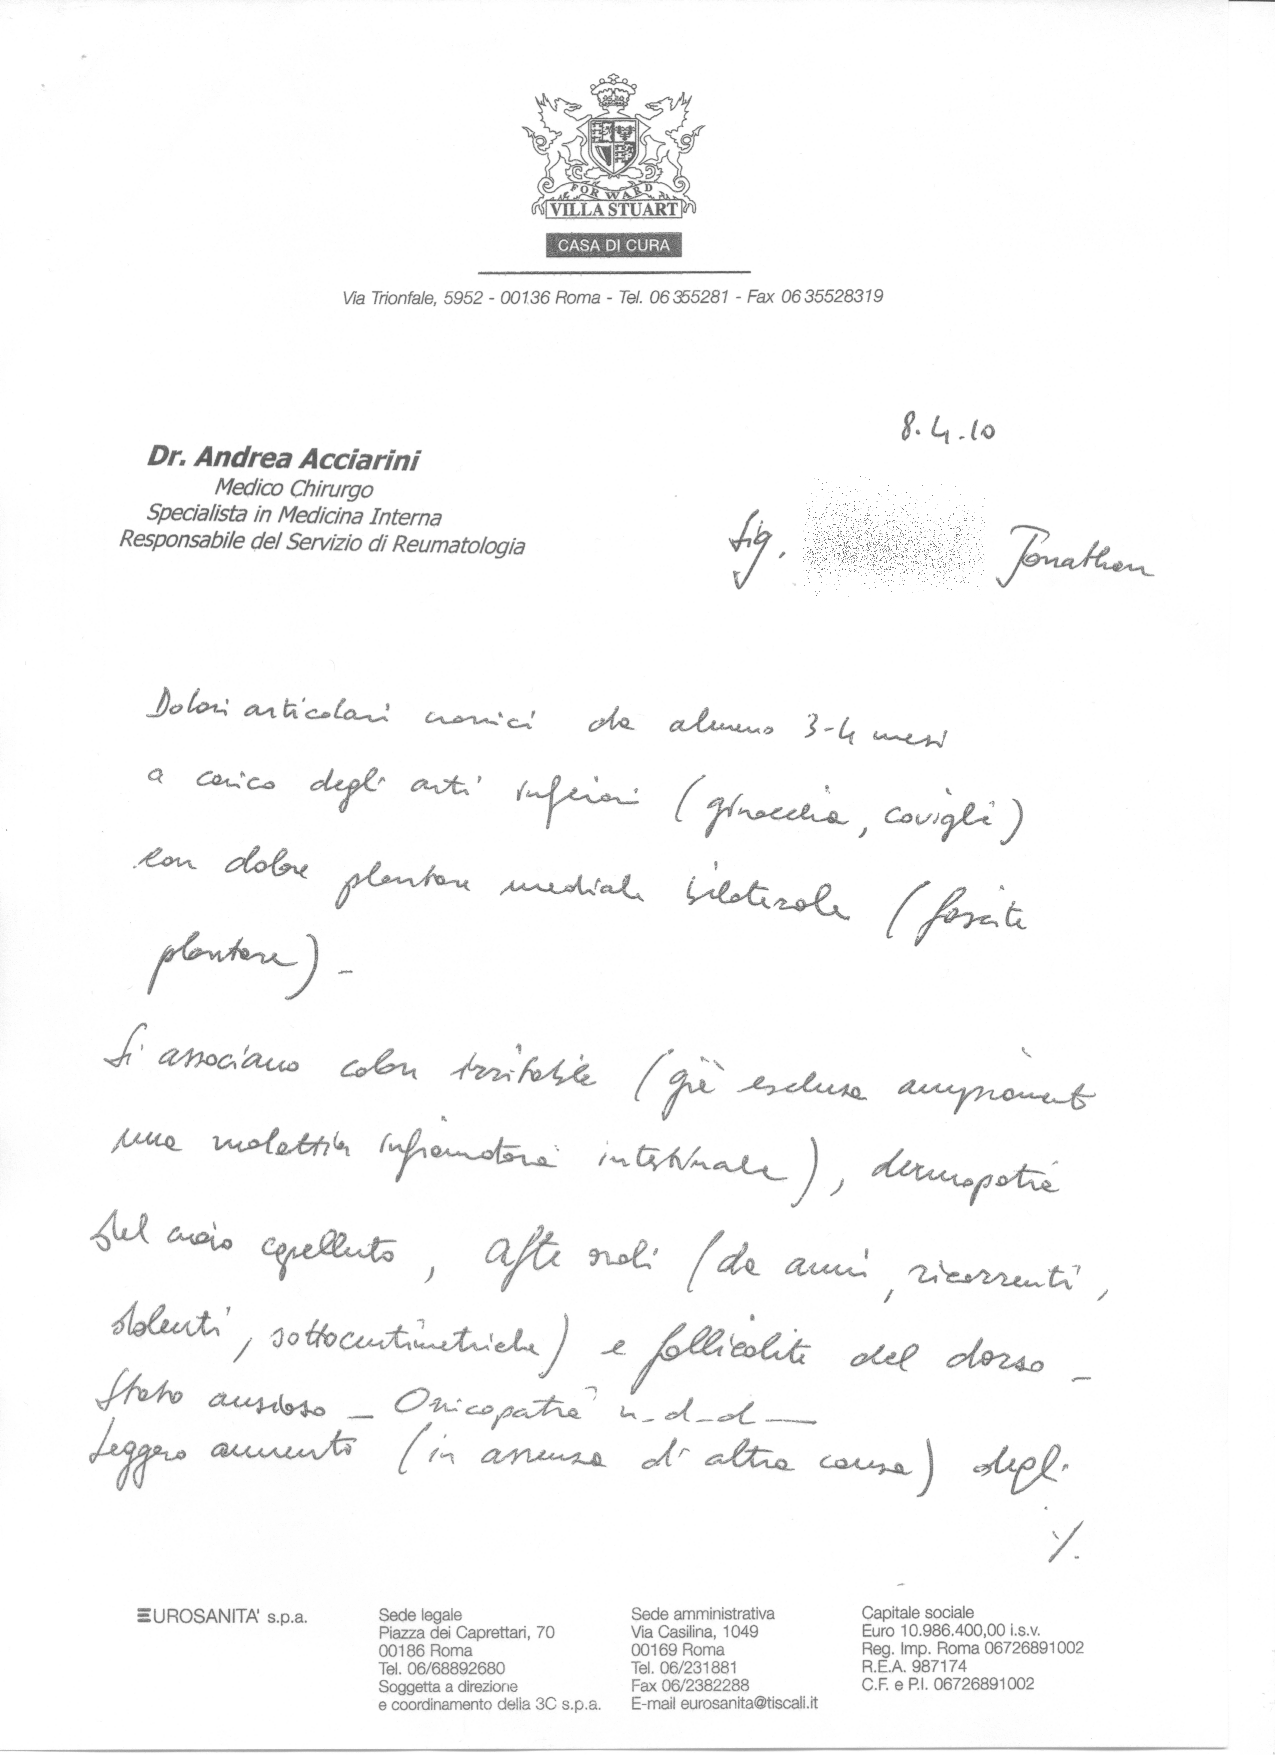 FORWARD
VILLA STUART
CASA DI CURA
Via Trionfale, 5952 - 00136 Roma - Tel. 06 355281 - Fax 06 35528319
8.4.10
Dr. Andrea Acciarini
Medico Chirurgo
Specialista in Medicina Interna
Responsabile del Servizio di Reumatologia
Sig. Jonathan
Dolori articolari cronici da almeno 3-4 mesi
a carico degli arti inferiori (ginocchia, caviglie)
con dolore plantare mediale bilaterale (fascite
plantare) -
Si associano colon irritabile (già esclusa ampiamente
una malattia infiammatoria intestinale), dermopatia
del cuoio capelluto, afte orali (da anni, ricorrenti,
dolenti, sottocentimetriche) e follicolite del dorso -
Stato ansioso - Onicopatia n-d-d -
Leggero aumento (in assenza di altra causa) degli
./.
EUROSANITA' s.p.a.
Sede legale
Piazza dei Caprettari, 70
00186 Roma
Tel. 06/68892680
Soggetta a direzione
e coordinamento della 3C s.p.a.
Sede amministrativa
Via Casilina, 1049
00169 Roma
Tel. 06/231881
Fax 06/2382288
E-mail eurosanita@tiscali.it
Capitale sociale
Euro 10.986.400,00 i.s.v.
Reg. Imp. Roma 06726891002
R.E.A. 987174
C.F. e P.I. 06726891002